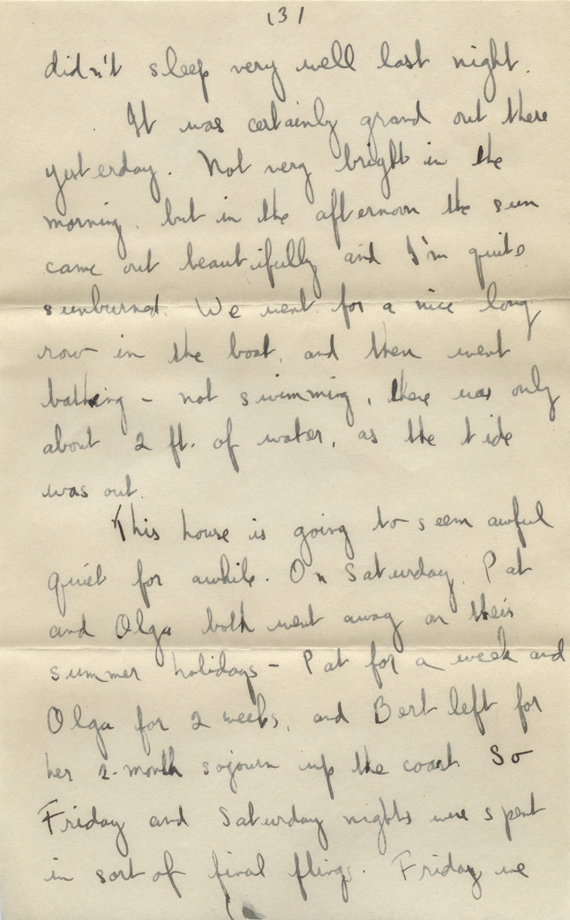 (3)
didn't sleep very well last night.
It was certainly grand out there
yesterday. Not very bright in the
morning. but in the afternoon the sun
came out beautifully and I'm quite
sunburned. We went for a nice long
row in the boat, and then went
bathing - not swimming, there was only
about 2 ft. of water, as the tide
was out.
This house is going to seem awful
quiet for awhile. On Saturday, Pat
and Olga both went away on their
summer holidays - Pat for a week and
Olga for 2 weeks, and Bert left for
her 2-month sojourn up the coast. So
Friday and Saturday nights were spent
in sort of final flings. Friday we